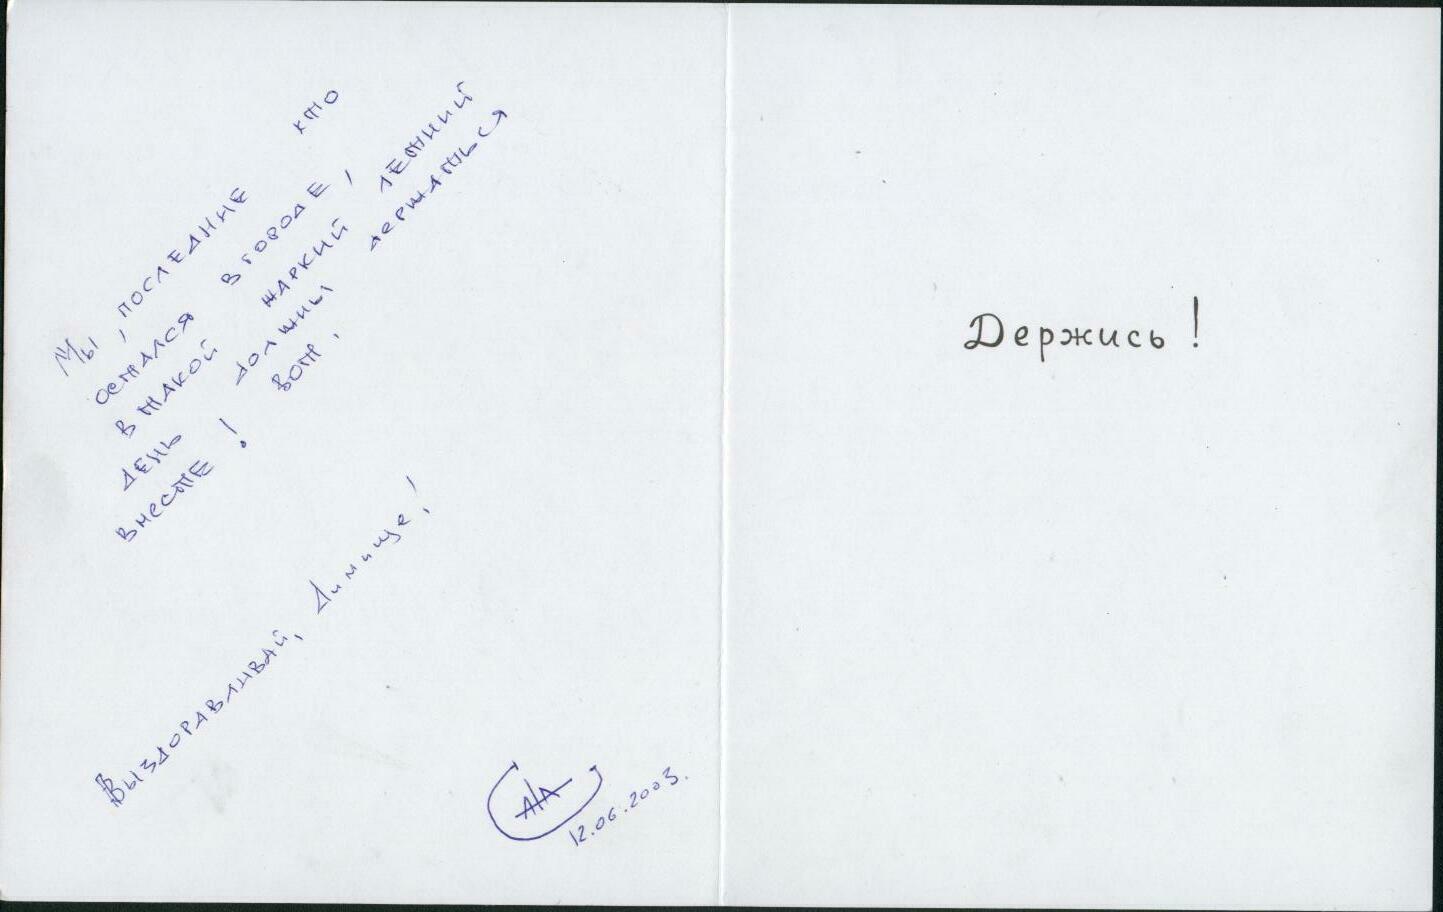 Мы, последние кто
остался в городе,
в такой жаркий летний
день должны держаться
вместе! Вот.
Выздоравливай, Димище!
12.06.2003.
Держись!